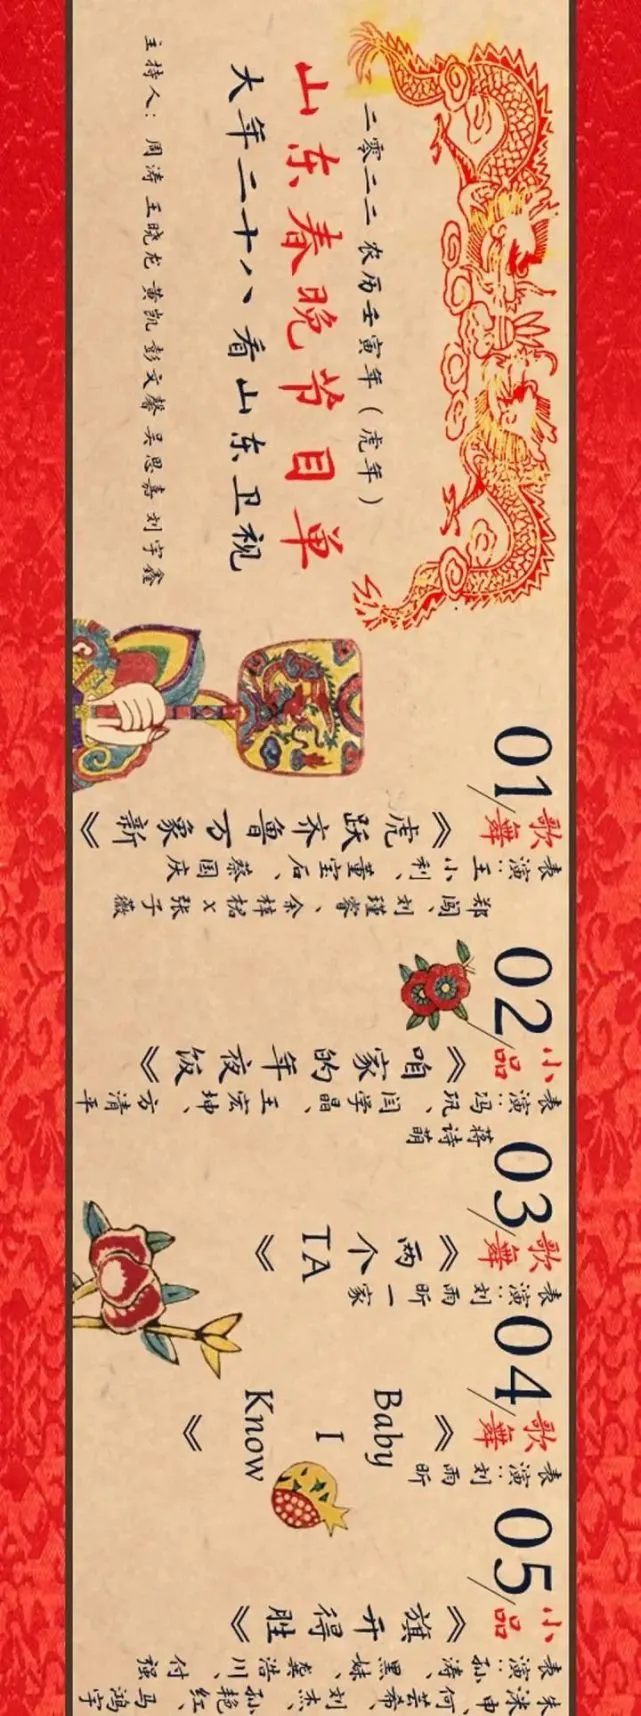 二零二二 农历壬寅年（虎年）
山东春晚节目单
大年二十八看山东卫视
主持人：周涛 王晓龙 黄凯 彭文馨 吴思嘉 刘宇鑫
01/歌舞
《虎跃齐鲁万象新》
表演：王小利、董宝石、蔡国庆
郑闯、刘瑾睿、余梓桾x张子薇
02/小品
《咱家的年夜饭》
表演：冯巩、闫学晶、王宏坤、方清平
蒋诗萌
03/歌舞
《两个TA》
表演：刘雨昕一家
04/歌舞
《Baby I Know》
表演：刘雨昕
05/小品
《旗开得胜》
表演：孙涛、黑妹、龚浩川、付强
朱洣申、何芸希、刘杰、孙艳红、马鸿宇